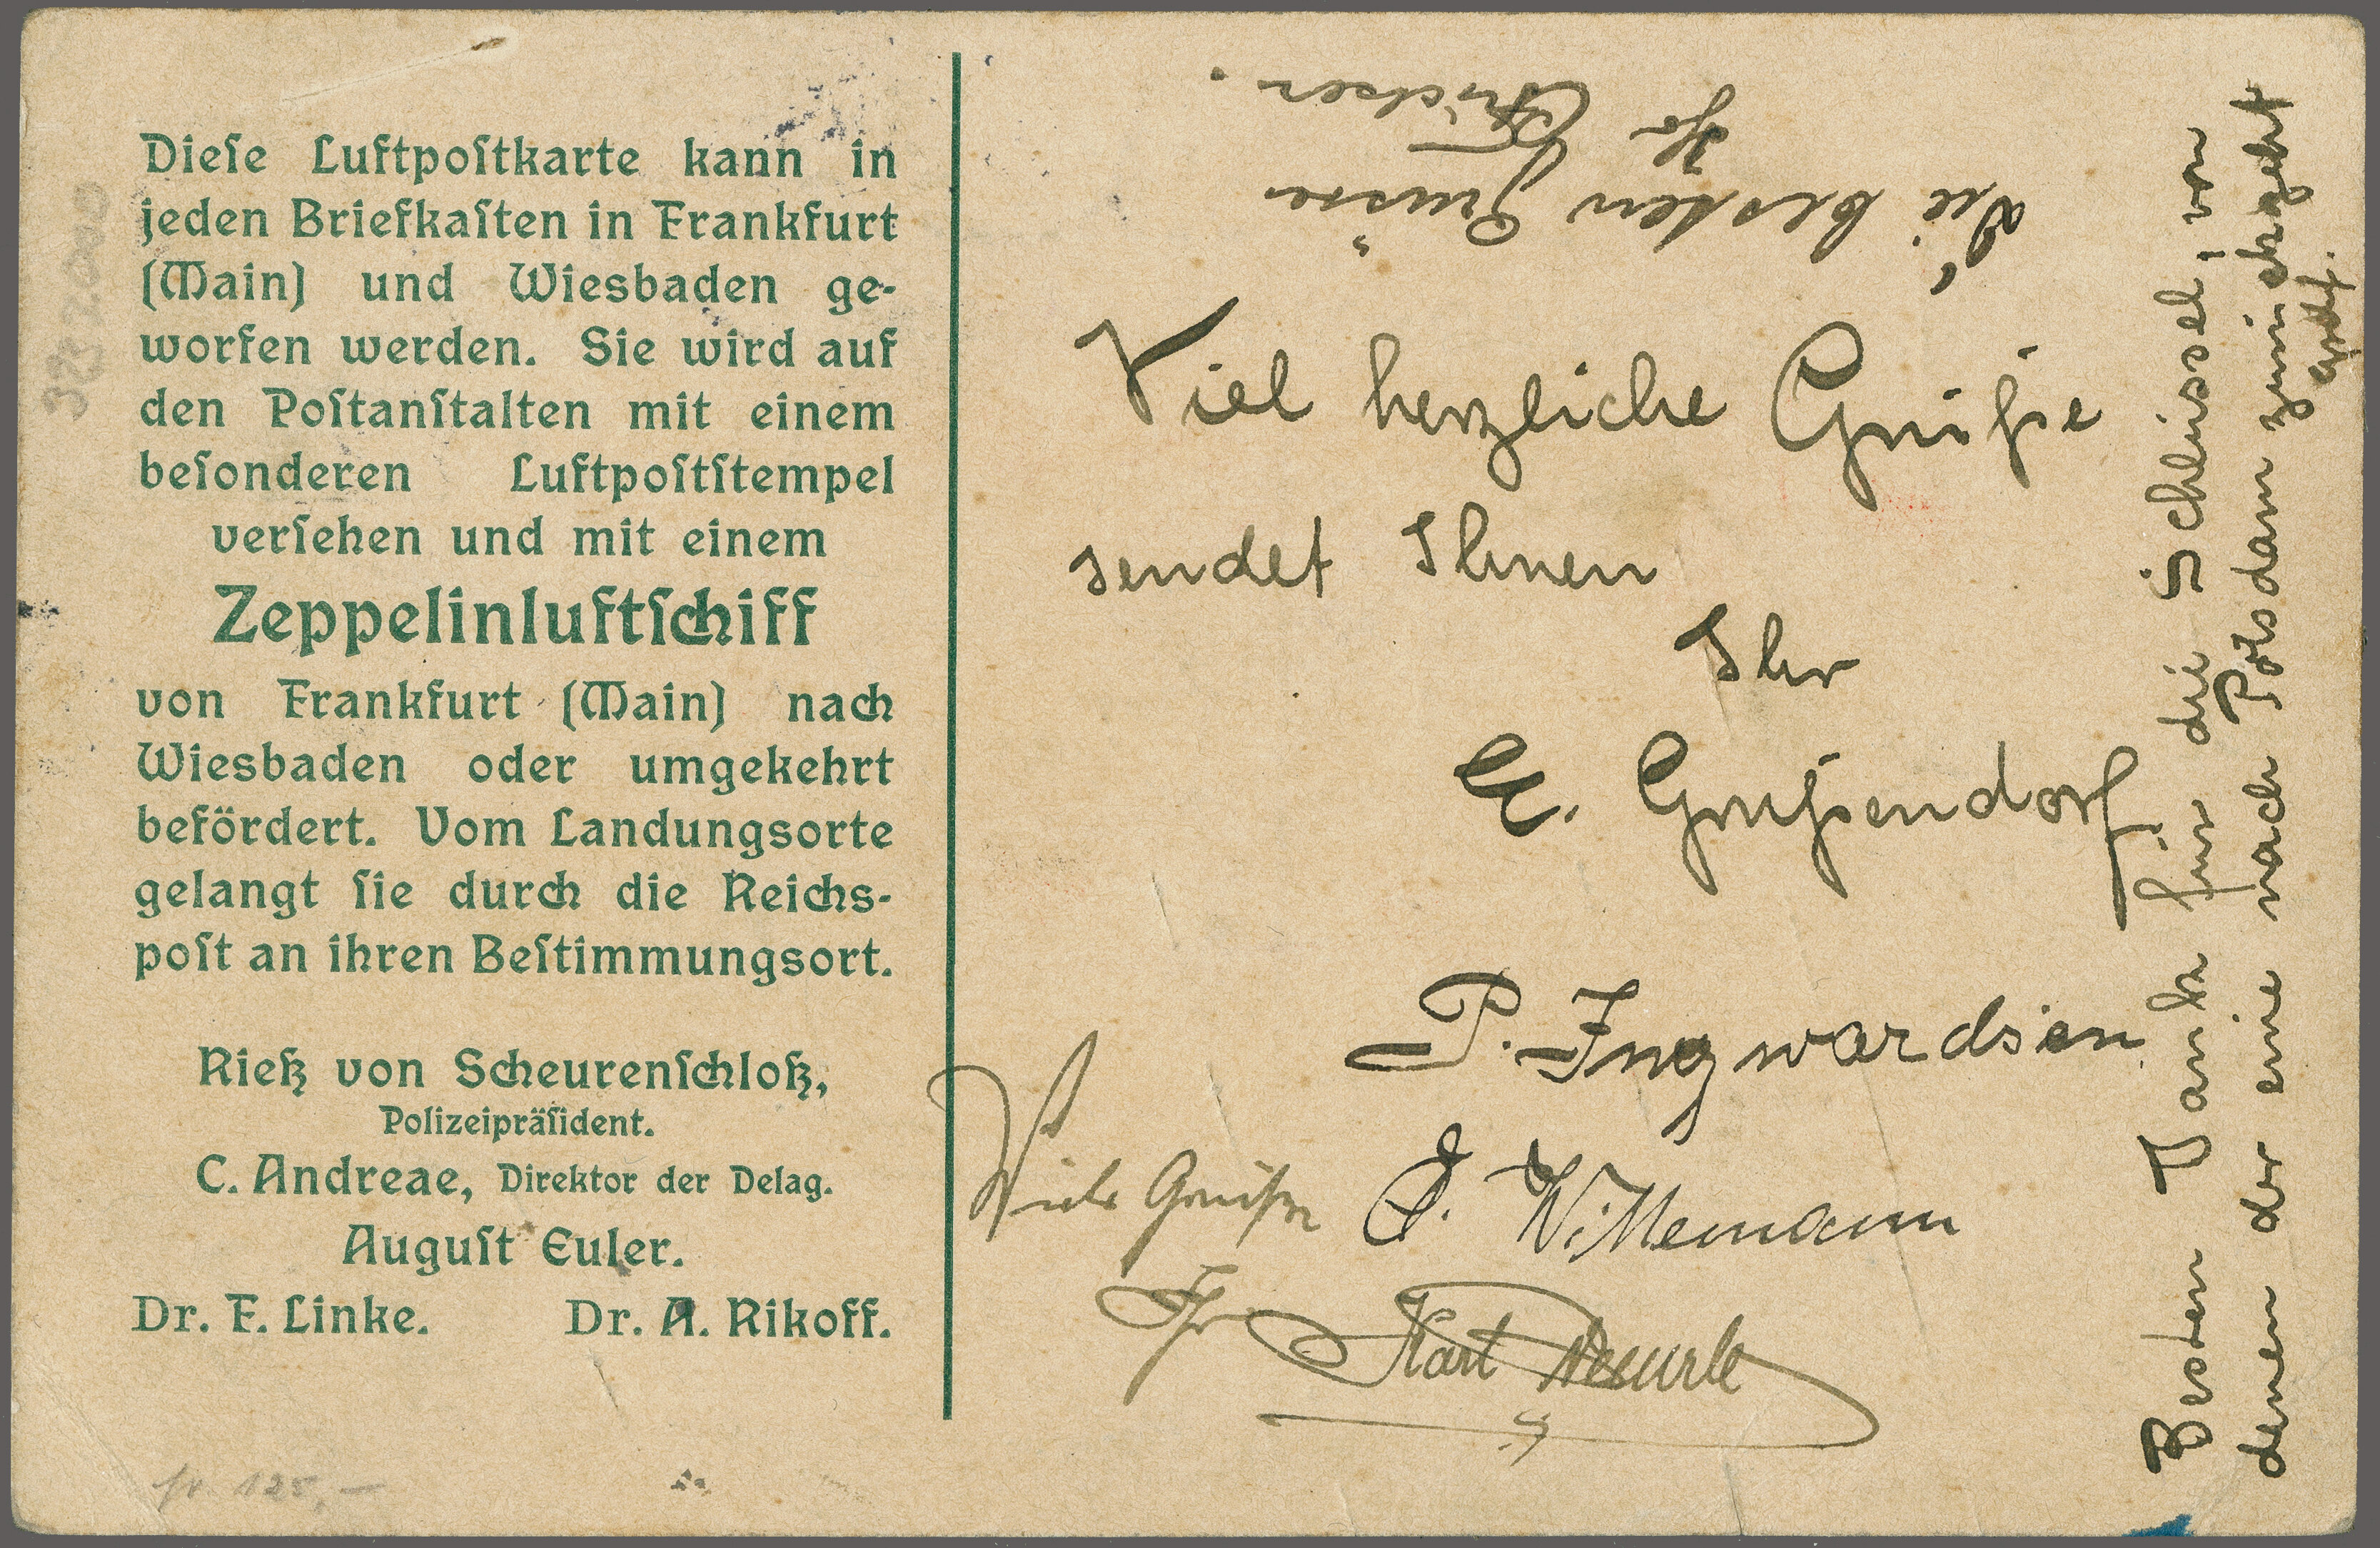 Dieſe Luftpoſtkarte kann in
jeden Briefkaſten in Frankfurt
(Main) und Wiesbaden ge-
worfen werden. Sie wird auf
den Poſtanſtalten mit einem
beſonderen Luftpoſtſtempel
verſehen und mit einem
Zeppelinluftſchiff
von Frankfurt (Main) nach
Wiesbaden oder umgekehrt
befördert. Vom Landungsorte
gelangt ſie durch die Reichs-
poſt an ihren Beſtimmungsort.
Rieß von Scheurenſchloß,
Polizeipräſident.
C. Andreae, Direktor der Delag.
Auguſt Euler.
Dr. F. Linke. Dr. A. Rikoff.
fr. 125,-
Die besten Grüsse
Viel herzliche Grüße
sendet Ihnen
Ihr
E. Grußendorf
P. Ingwardsen
Viele Grüße
Wittemann
Ihr Karl
Besten Dank für die Schlüssel, von
denen der eine nach Potsdam zurückgeht